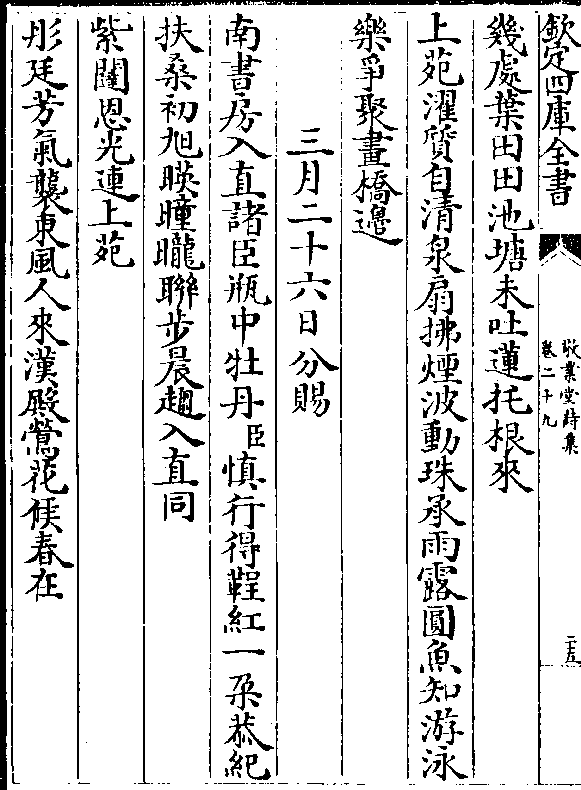 欽定四庫全書
敬業堂詩集
卷二十九
二五
幾處葉田田池塘未吐蓮托根來
上苑濯質自清泉扇拂煙波動珠承雨露圓魚知游泳
樂爭聚畫橋邊
三月二十六日分賜
南書房入直諸臣瓶中牡丹臣慎行得鞓紅一朶恭紀
扶桑初旭暎曈曨聯步晨趨入直同
紫闥恩光連上苑
彤廷芳氣襲東風人來漢殿鶯花候春在